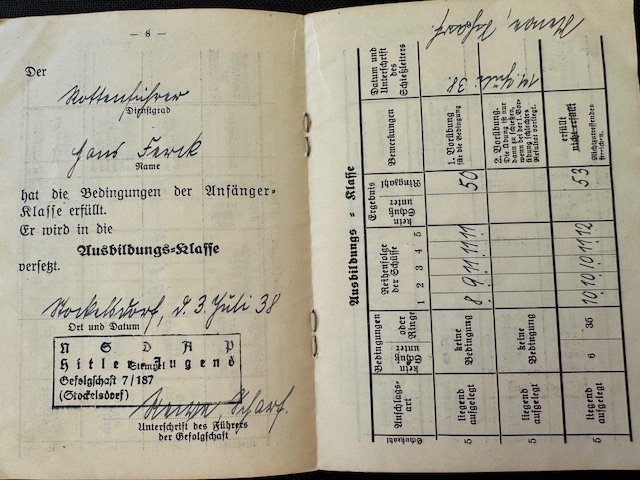 — 8 —
Der
Rottenführer
Dienstgrad
Hans Ferck
Name
hat die Bedingungen der Anfänger-
Klasse erfüllt.
Er wird in die
Ausbildungs-Klasse
versetzt.
Stockelsdorf, d. 3. Juli 38
Ort und Datum
N S D A P
Hitler Jugend
Stempel
Gefolgschaft 7/187
(Stockelsdorf)
Scharf.
Unterschrift des Führers
der Gefolgschaft
Ausbildungs-Klasse
Schußzahl
Anschlags-
art
Bedingungen
kein
Schuß
unter
oder
Ringe
Reihenfolge
der Schüsse
1 2 3 4 5
Ergebnis
kein
Schuß
unter
Ringzahl
Bemerkungen
Datum und
Unterschrift
des
Schießleiters
5
liegend
aufgelegt
keine
Bedingung
8 9 11 11 11
50
1. Vorübung
für die Bedingung
14 Juli 38.
5
liegend
aufgelegt
keine
Bedingung
2. Vorübung.
Die Übung ist nur
dann zu schießen,
wenn bei der 1. Vor-
übung schlechtes
Resultat vorliegt.
5
liegend
aufgelegt
6
35
10 10 10 11 12
53
erfüllt
nicht erfüllt
Nichtzutreffendes
streichen.
Scharf.